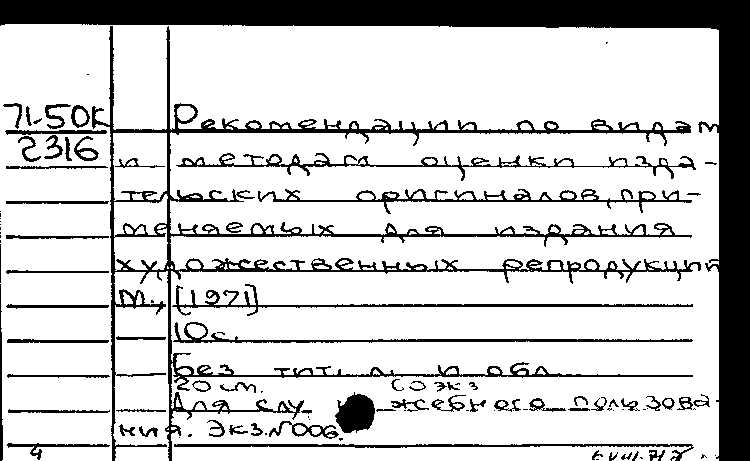 71-50к Рекомендации по видам
2316 и методам оценки изда-
тельских оригиналов, при-
меняемых для издания
художественных репродукций
М., [1971]
10с.
Без тит. л. и обл.
20 см. 60 экз
Для служебного пользова-
ния. Экз.№006.
4